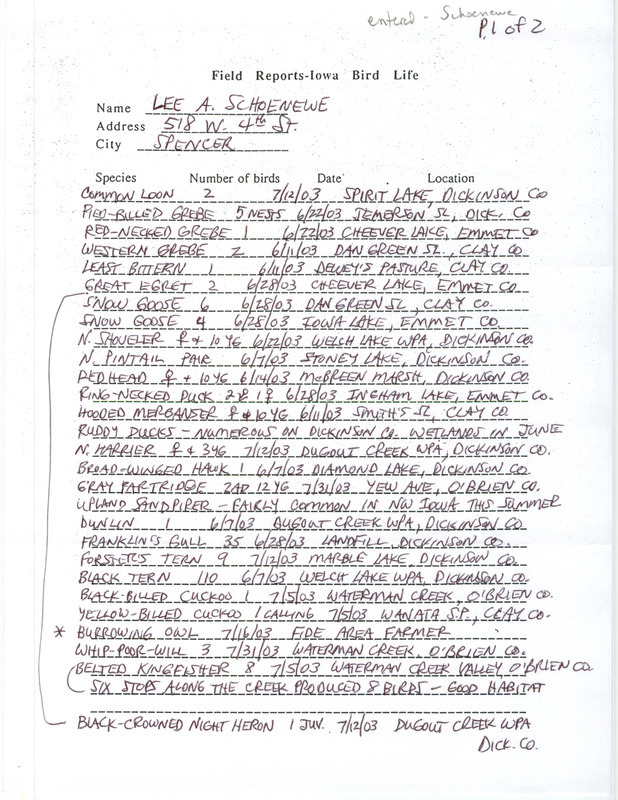 enterd - Schoenewe
P.1 of 2
Field Reports-Iowa Bird Life
Name LEE A. SCHOENEWE
Address 518 W. 4th St.
City SPENCER
Species Number of birds Date Location
COMMON LOON 2 7/12/03 SPIRIT LAKE, DICKINSON CO
PIED-BILLED GREBE 5 NESTS 6/22/03 JEMERSON SL, DICK. CO
RED-NECKED GREBE 1 6/22/03 CHEEVER LAKE, EMMET CO
WESTERN GREBE 2 6/11/03 DAN GREEN SL, CLAY CO
LEAST BITTERN 1 6/11/03 DEWEY'S PASTURE, CLAY CO.
GREAT EGRET 2 6/28/03 CHEEVER LAKE, EMMET CO.
SNOW GOOSE 6 6/28/03 DAN GREEN SL, CLAY CO.
SNOW GOOSE 4 6/28/03 IOWA LAKE, EMMET CO.
N. SHOVELER ♀ + 10 YG 6/22/03 WELCH LAKE WPA, DICKINSON CO.
N. PINTAIL PAIR 6/7/03 STONEY LAKE, DICKINSON CO.
REDHEAD ♀ + 10 YG 6/14/03 McBREEN MARSH, DICKINSON CO.
RING-NECKED DUCK 2♂ 1♀ 6/28/03 INGHAM LAKE, EMMET CO.
HOODED MERGANSER ♀ + 10 YG 6/11/03 SMITH'S SL, CLAY CO.
RUDDY DUCKS - NUMEROUS ON DICKINSON CO. WETLANDS IN JUNE
N. HARRIER ♀ + 3 YG 7/12/03 DUGOUT CREEK WPA, DICKINSON CO.
BROAD-WINGED HAWK 1 6/7/03 DIAMOND LAKE, DICKINSON CO.
GRAY PARTRIDGE 2AD 12 YG 7/31/03 YEW AVE, O'BRIEN CO.
UPLAND SANDPIPER - FAIRLY COMMON IN NW IOWA THIS SUMMER
DUNLIN 1 6/7/03 DUGOUT CREEK WPA, DICKINSON CO.
FRANKLIN'S GULL 35 6/28/03 LANDFILL, DICKINSON CO.
FORSTER'S TERN 9 7/12/03 MARBLE LAKE, DICKINSON CO.
BLACK TERN 110 6/7/03 WELCH LAKE WPA, DICKINSON CO.
BLACK-BILLED CUCKOO 1 7/5/03 WATERMAN CREEK, O'BRIEN CO.
YELLOW-BILLED CUCKOO 1 CALLING 7/5/03 WANATA S.P., CLAY CO.
* BURROWING OWL 7/16/03 FIDE AREA FARMER
WHIP-POOR-WILL 3 7/31/03 WATERMAN CREEK, O'BRIEN CO.
BELTED KINGFISHER 8 7/5/03 WATERMAN CREEK VALLEY, O'BRIEN CO.
SIX STOPS ALONG THE CREEK PRODUCED 8 BIRDS - GOOD HABITAT
BLACK-CROWNED NIGHT HERON 1 JUV. 7/12/03 DUGOUT CREEK WPA
DICK. CO.